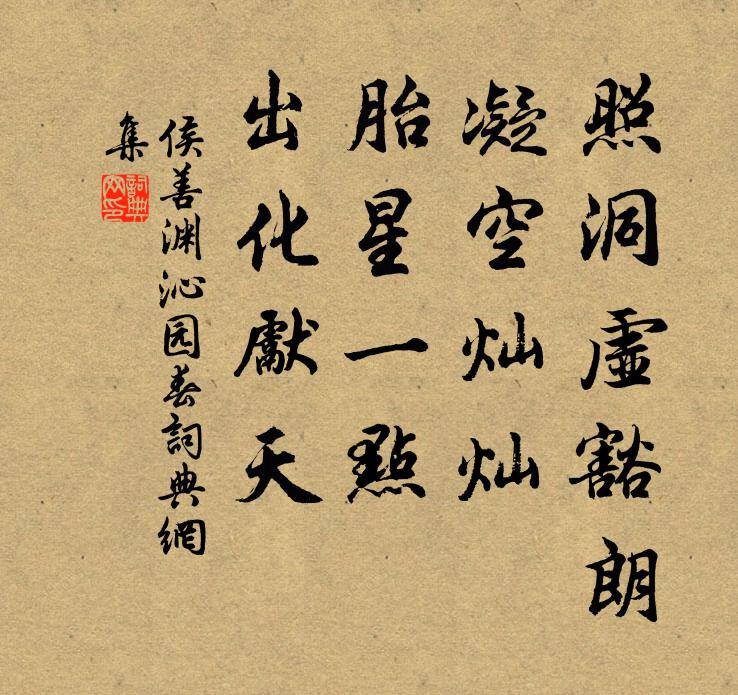 照洞虛豁朗
凝空灿灿
胎星一點
出化獻天
侯善渊沁园春詞典網
集
詞典
网印